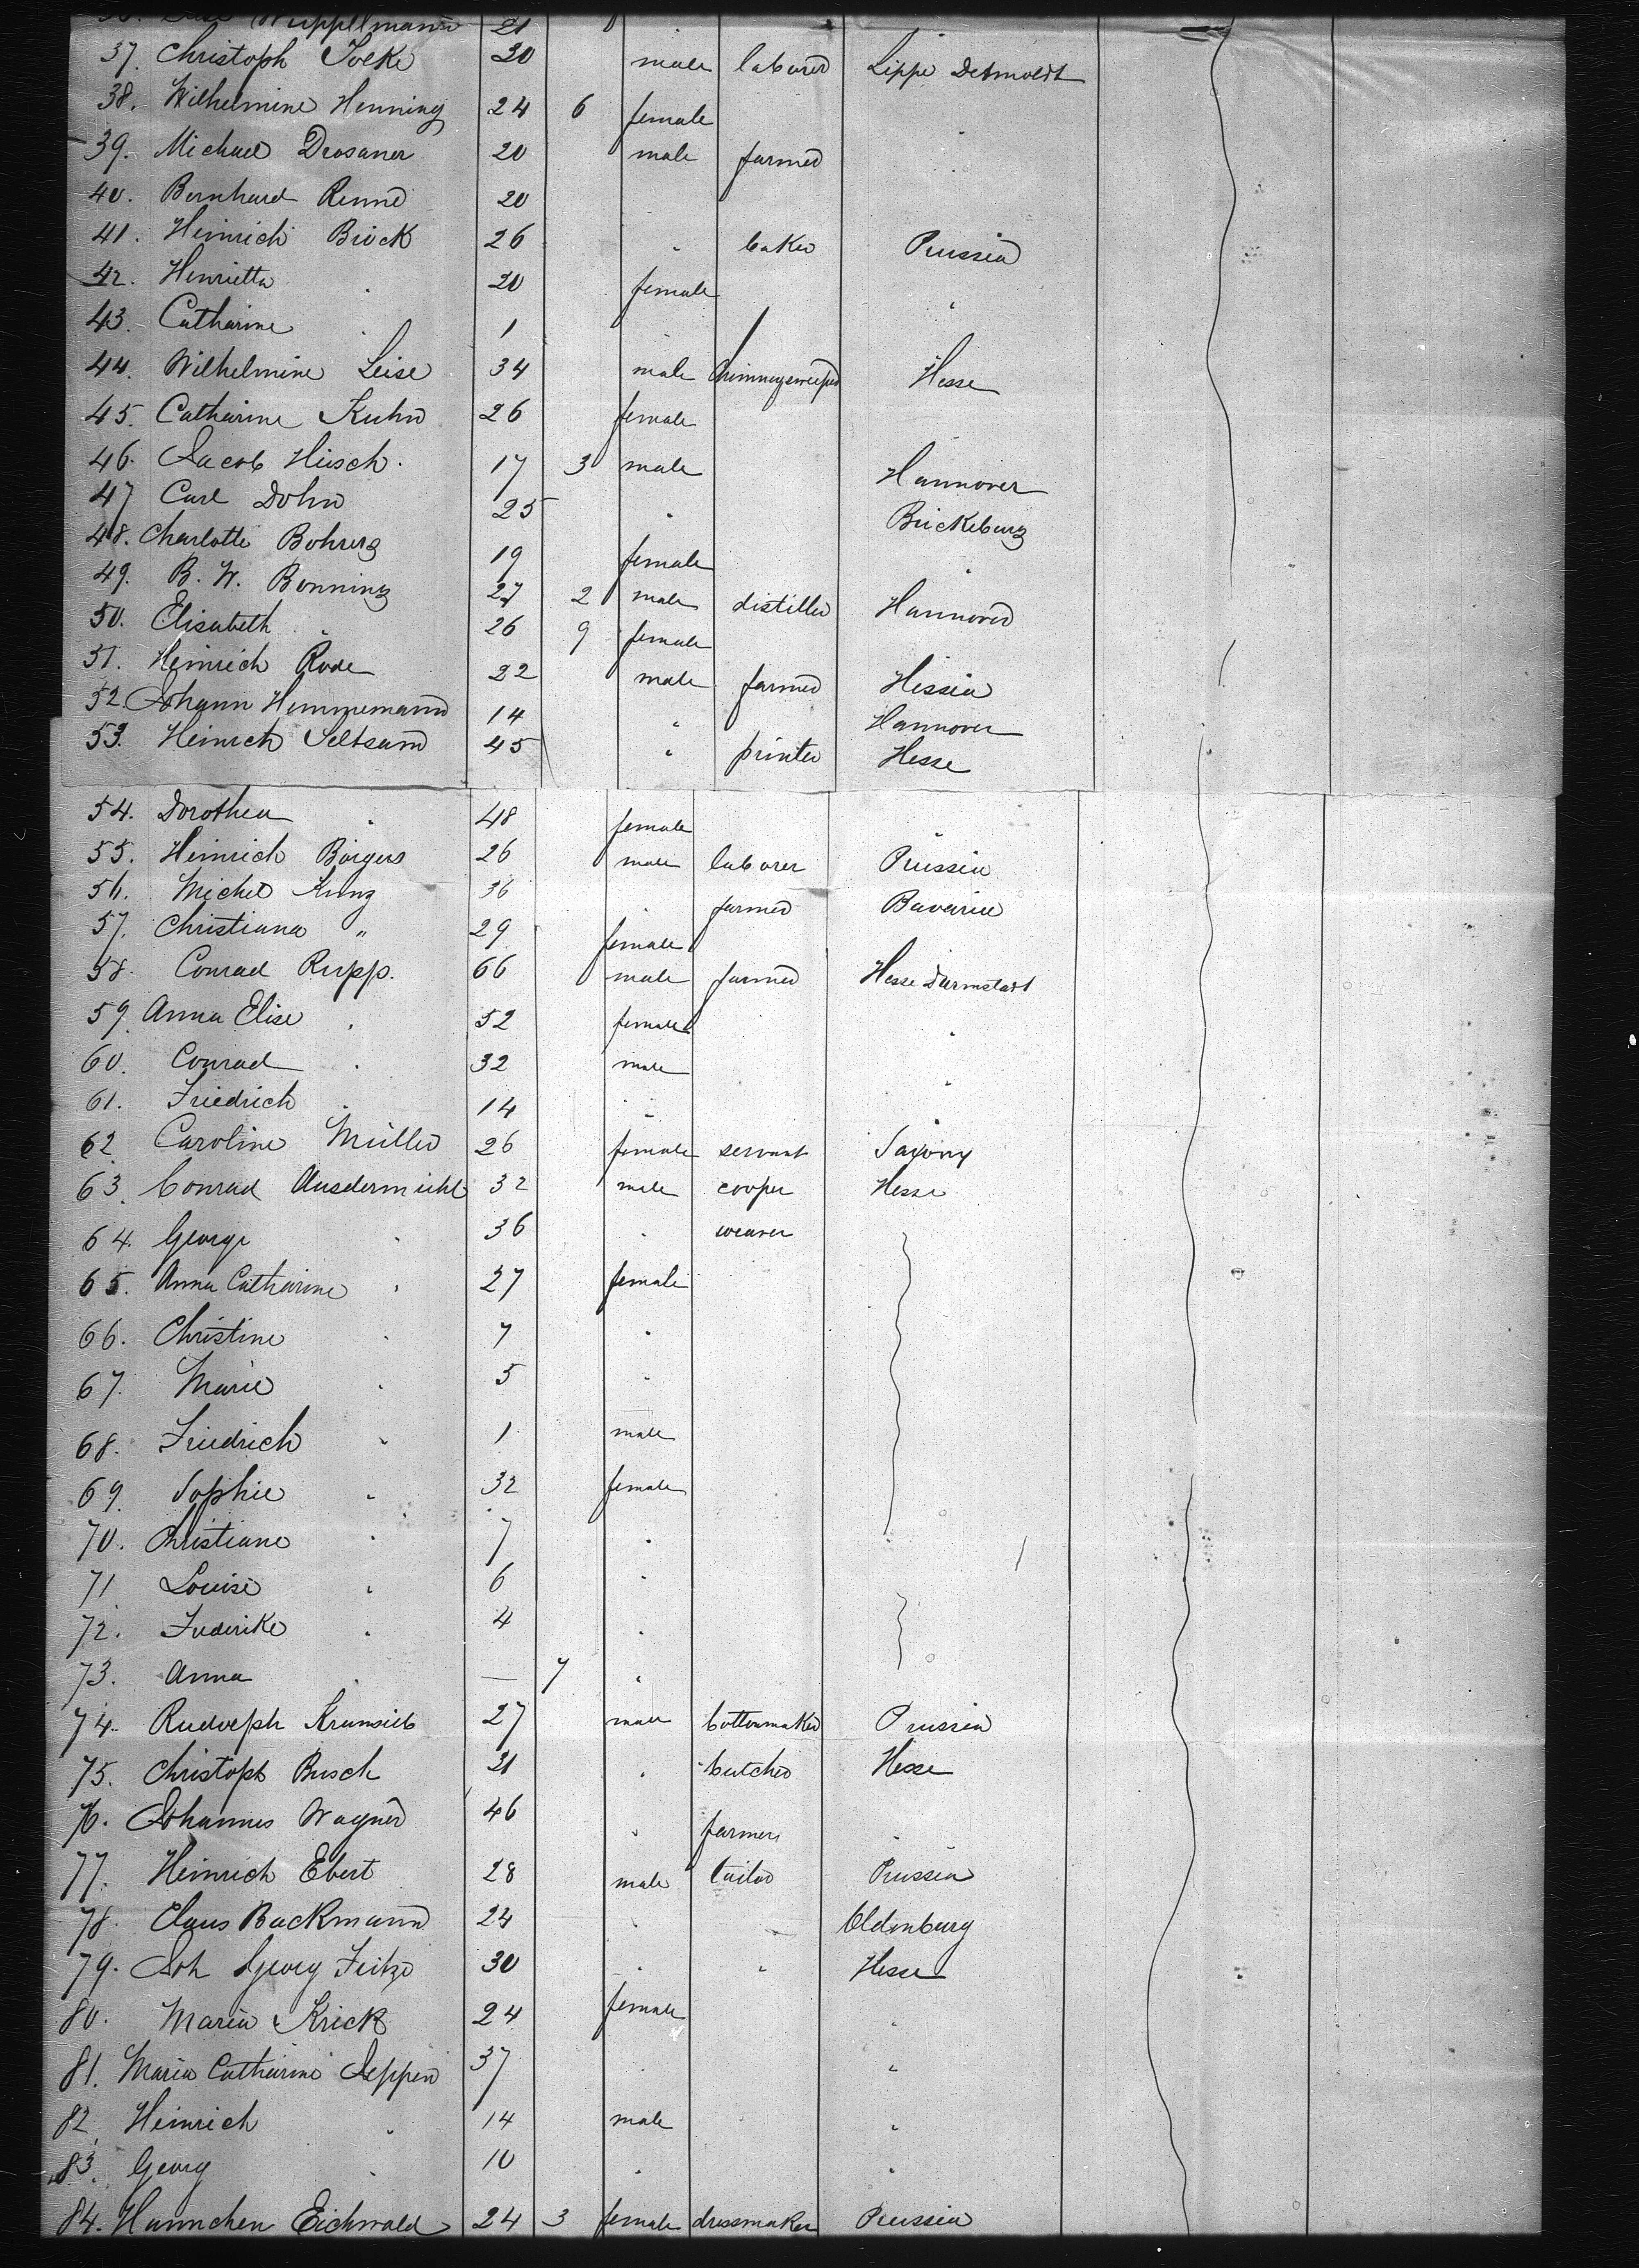 Wuppelmann 21
37. Christoph Tölke 20 male laborer Lippe Detmoldt
38. Wilhelmine Henning 24 6 female "
39. Michael Drosaner 20 male farmer "
40. Bernhard Renne 20
41. Heinrich Brock 26 " baker Prussia
42. Henrietta " 20 female "
43. Catharine " 1
44. Wilhelmine Leise 34 male Chimneysweeper Hesse
45. Catharine Kuhn 26 female "
46. Jacob Hirsch. 17 3 male Hannover
47 Carl Dohn 25 " Bückeburg
48. Charlotte Bohrerg 19 female "
49. B. W. Bonning 27 2 male distiller Hannover
50. Elisabeth " 26 9 female
51. Heinrich Rode 22 male farmer Hessia
52 Johann Hemmemann 14 " Hannover
53. Heinrch Seltsam 45 " printer Hesse
54. Dorothea " 48 female "
55. Heinrich Börgers 26 male laborer Prussia
56. Michel Kunz 36 " farmer Bavaria
57. Christiana " 29 female
58. Conrad Rupp. 66 male farmer Hesse Darmstadt
59. Anna Elise " 52 female "
60. Conrad " 32 male "
61. Friedrich " 14 " "
62. Caroline Müller 26 female servant Saxony
63. Conrad Ausdermühl 32 male cooper Hesse
64. George " 36 " weaver
65. Anna Catharine " 27 female
66. Christine " 7 "
67. Marie " 5 "
68. Friedrich " 1 male
69. Sophie " 32 female
70. Christiane " 7 "
71 Louise " 6 "
72. Frederike " 4 "
73. Anna " — 7 "
74. Rudolph Krumsieb 27 male bottonmaker Prussia
75. Christoph Busch 21 " butcher Hesse
76. Johannes Wagner 46 " farmer "
77. Heinrich Ebert 28 male tailor Prussia
78. Claus Backmann 24 " " Oldenburg
79. Joh Georg Fritze 30 " " Hesse
80. Maria Krick 24 female "
81. Maria Catharine Seppen 37 " "
82 Heinrich " 14 male "
83. Georg " 10 " "
84. Hannchen Eichwald 24 3 female dressmaker Prussia